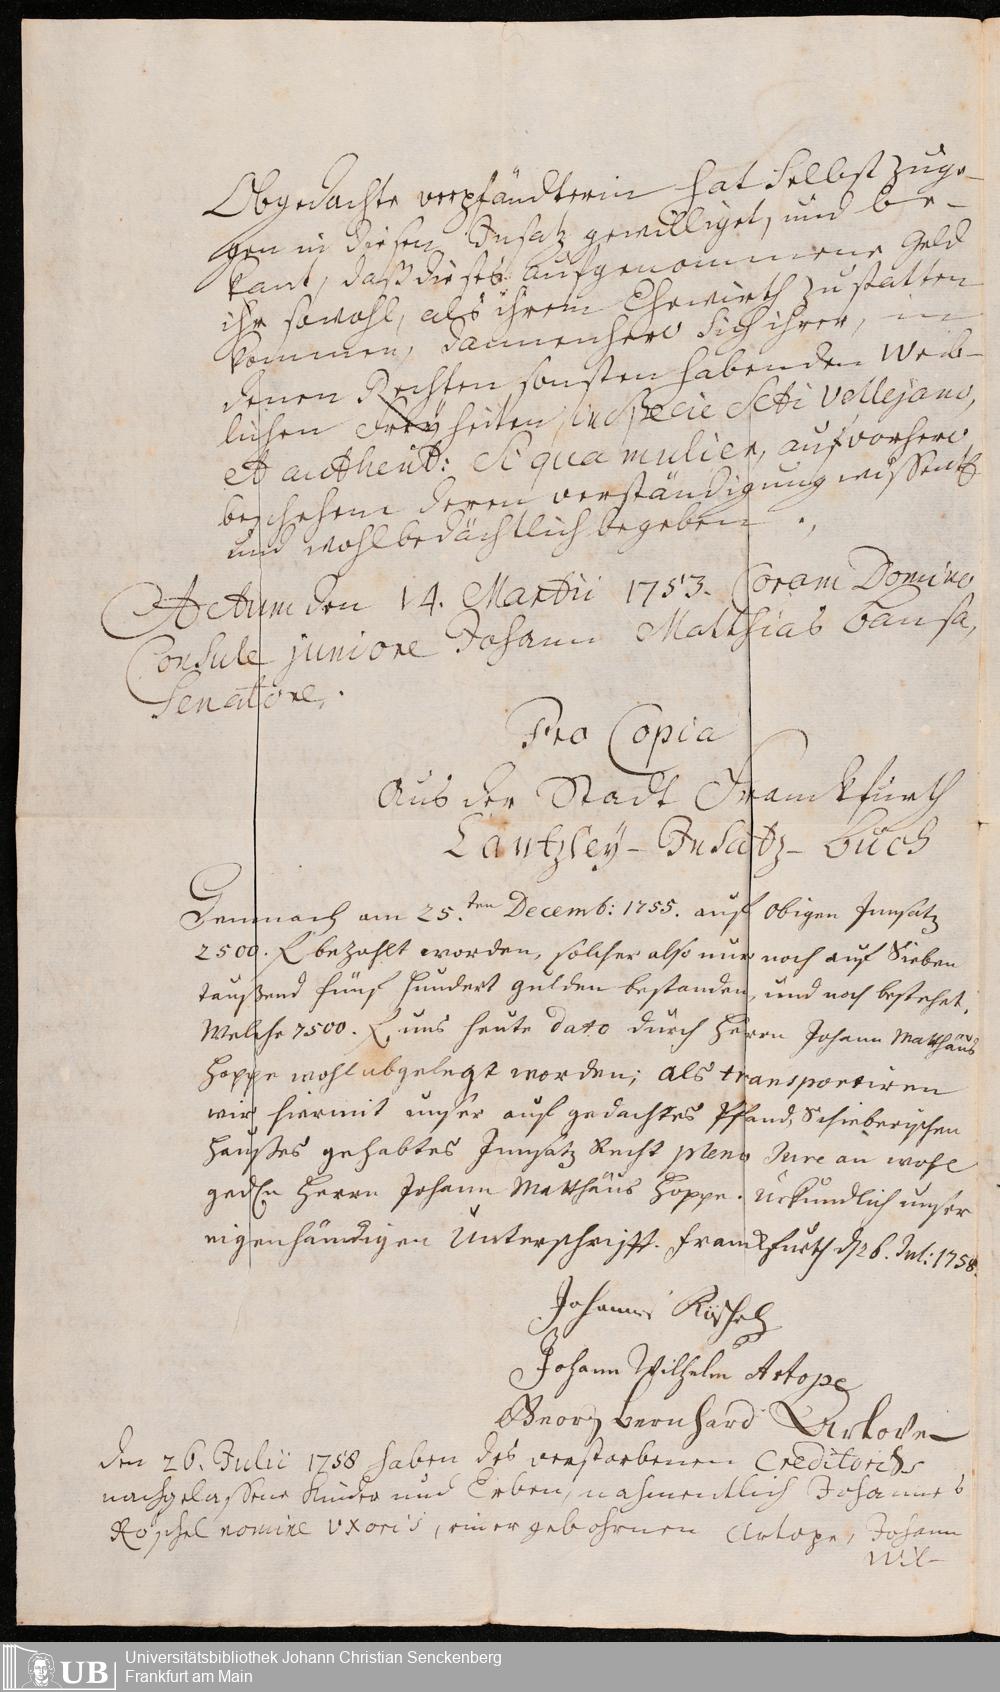 Obgedachte verpfändterin hat Selbst zuge-
gen in diesen Insatz gewilliget, und be-
kant, daß dieses aufgenommene Geld
ihr sowohl, als ihrem Ehewirth zu statten
kommen, dannenhero Sich ihrer, in
denen Rechten sonsten habenden Weib-
lichen Freyheiten, in specie SCti Vellejano,
et authent: Si qua mulier, auf vorhero
beschehene deren verständigung wissentl.
und wohlbedächtlich begeben.
Actum den 14. Martii 1753. Coram Domino
Consule juniore Johann Matthias Bansa,
Senatore.
Pro Copia
Aus der Stadt Franckfurth
Cantzley-Insatz-Buch
Demnach am 25.ten Decemb: 1755. auf obigen Innsatz
2500. f. bezahlt worden, solcher also nur noch auf Sieben
taußend fünf hundert gulden bestanden, und noch bestehet.
Welche 7500. f. uns heute dato durch Herrn Johann Matthäus
Hoppe wohl abgelegt worden; als transportiren
wir hiermit unser auf gedachtes Pfand, Schieberischen
Haußes gehabtes Innsatz Recht pleno Jure an wohl
gedln Herrn Johann Matthäus Hoppe. Urkundlich unser
eigenhändigen Unterschrifft. Franckfurth d. 26. Jul: 1758.
Johannes Röschel
Johann Wilhelm Artope
Georg Bernhard Artope
den 26. Julii 1758 haben des verstorbenen Creditoris
nachgelaßene Kinder und Erben, nahmentlich Johannes
Röschel nomine uxoris, einer gebohrnen Artope, Johann
Wil-
UB
Universitätsbibliothek Johann Christian Senckenberg
Frankfurt am Main